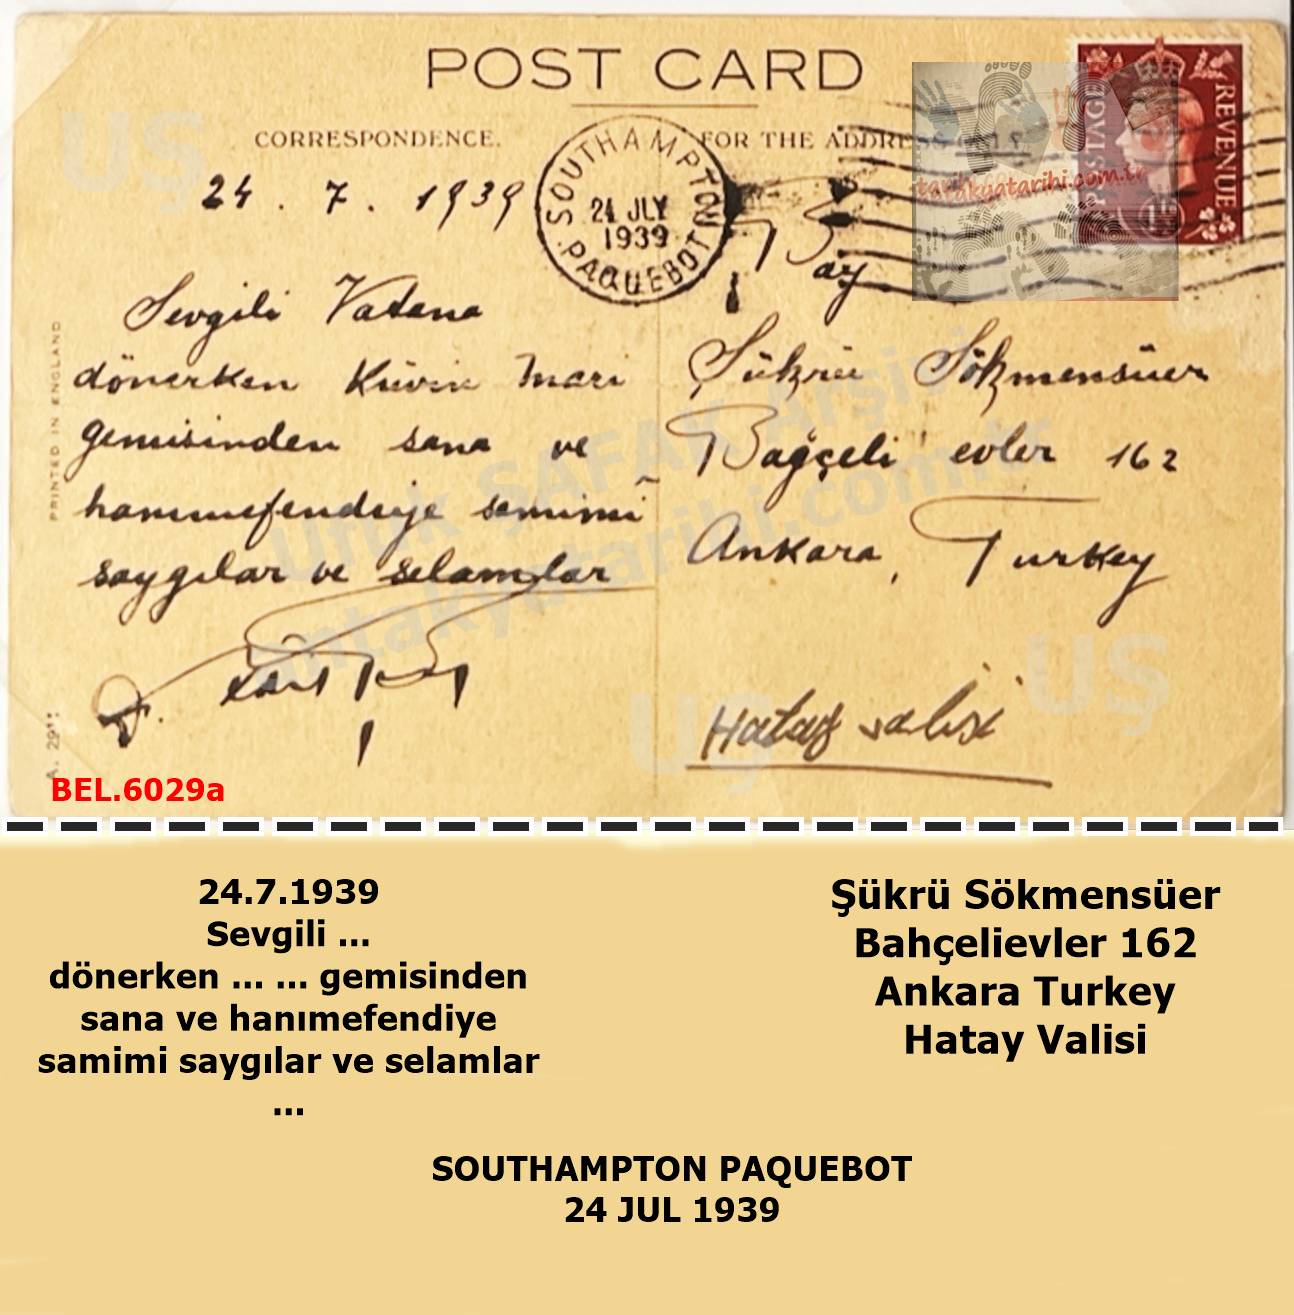 POST CARD
CORRESPONDENCE.
FOR THE ADDRESS
24 . 7 . 1939
SOUTHAMPTON
24 JLY
1939
PAQUEBOT
POSTAGE
REVENUE
antakyatarihi.com.tr
Sevgili Vatana
dönerken Küvin Mari
gemisinden sana ve
hanımefendiye samimî
saygılar ve selamlar
Bay
Şükrü Sökmensüer
Bağçeli evler 162
Ankara, Turkey
Hatay valisi
PRINTED IN ENGLAND
UŞ
Ufuk ŞAFAK Arşivi
antakyatarihi.com.tr
UŞ
UŞ
BEL.6029a
24.7.1939
Sevgili ...
dönerken ... ... gemisinden
sana ve hanımefendiye
samimi saygılar ve selamlar
...
Şükrü Sökmensüer
Bahçelievler 162
Ankara Turkey
Hatay Valisi
SOUTHAMPTON PAQUEBOT
24 JUL 1939